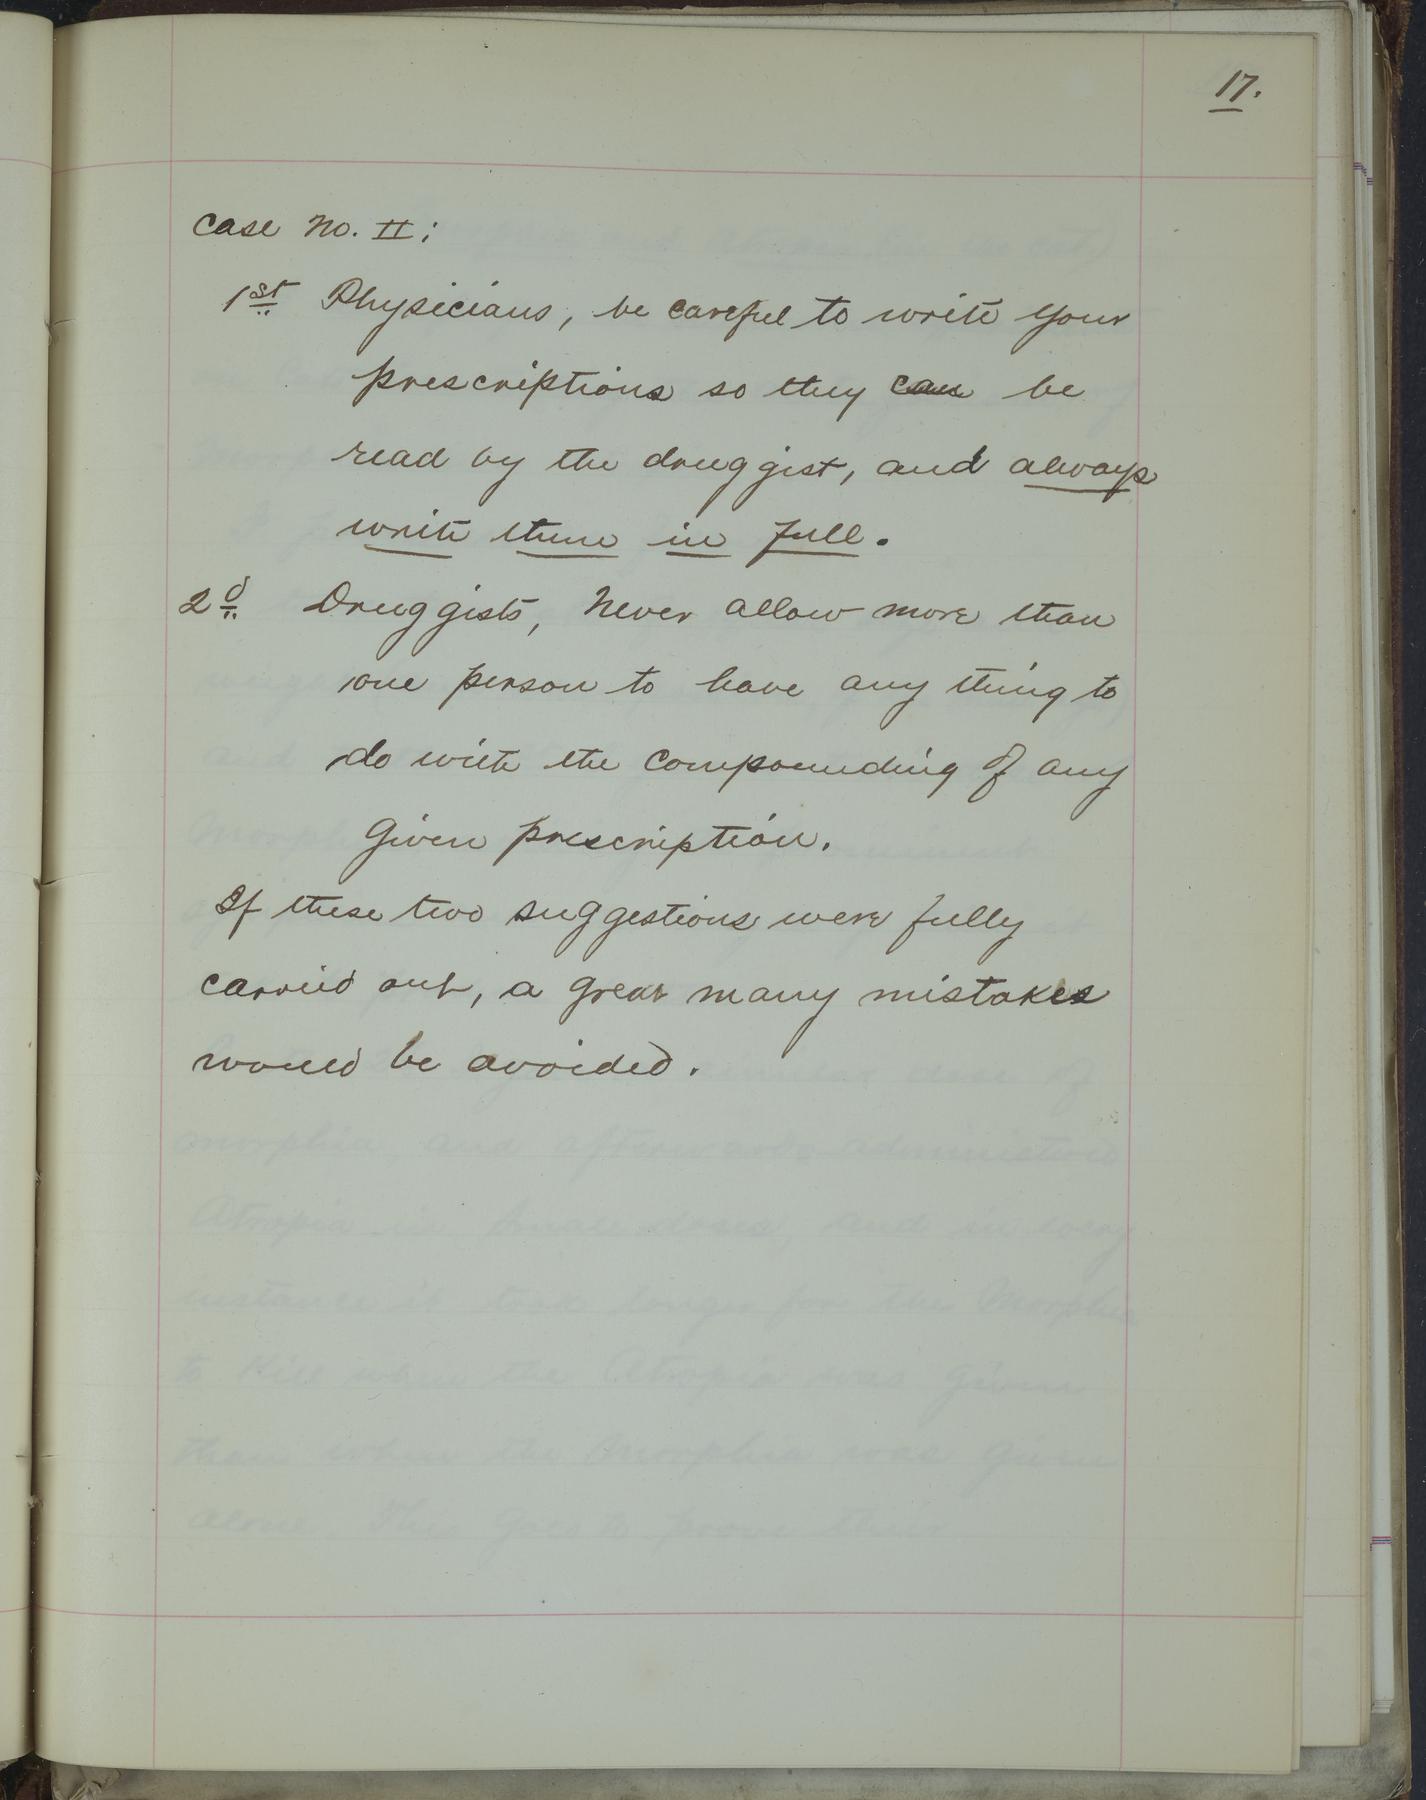 17.
Case No. II;
1st Physicians, be careful to write your
prescriptions so they can be
read by the druggist, and always
write them in full.
2d Druggists, Never allow more than
one person to have any thing to
do with the compounding of any
given prescription.
If these two suggestions were fully
carried out, a great many mistakes
would be avoided.